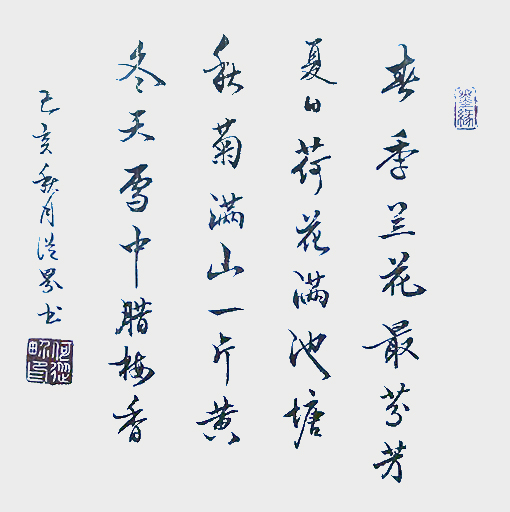 春季兰花最芬芳
夏日荷花满池塘
秋菊满山一片黄
冬天雪中腊梅香
己亥秋月
书